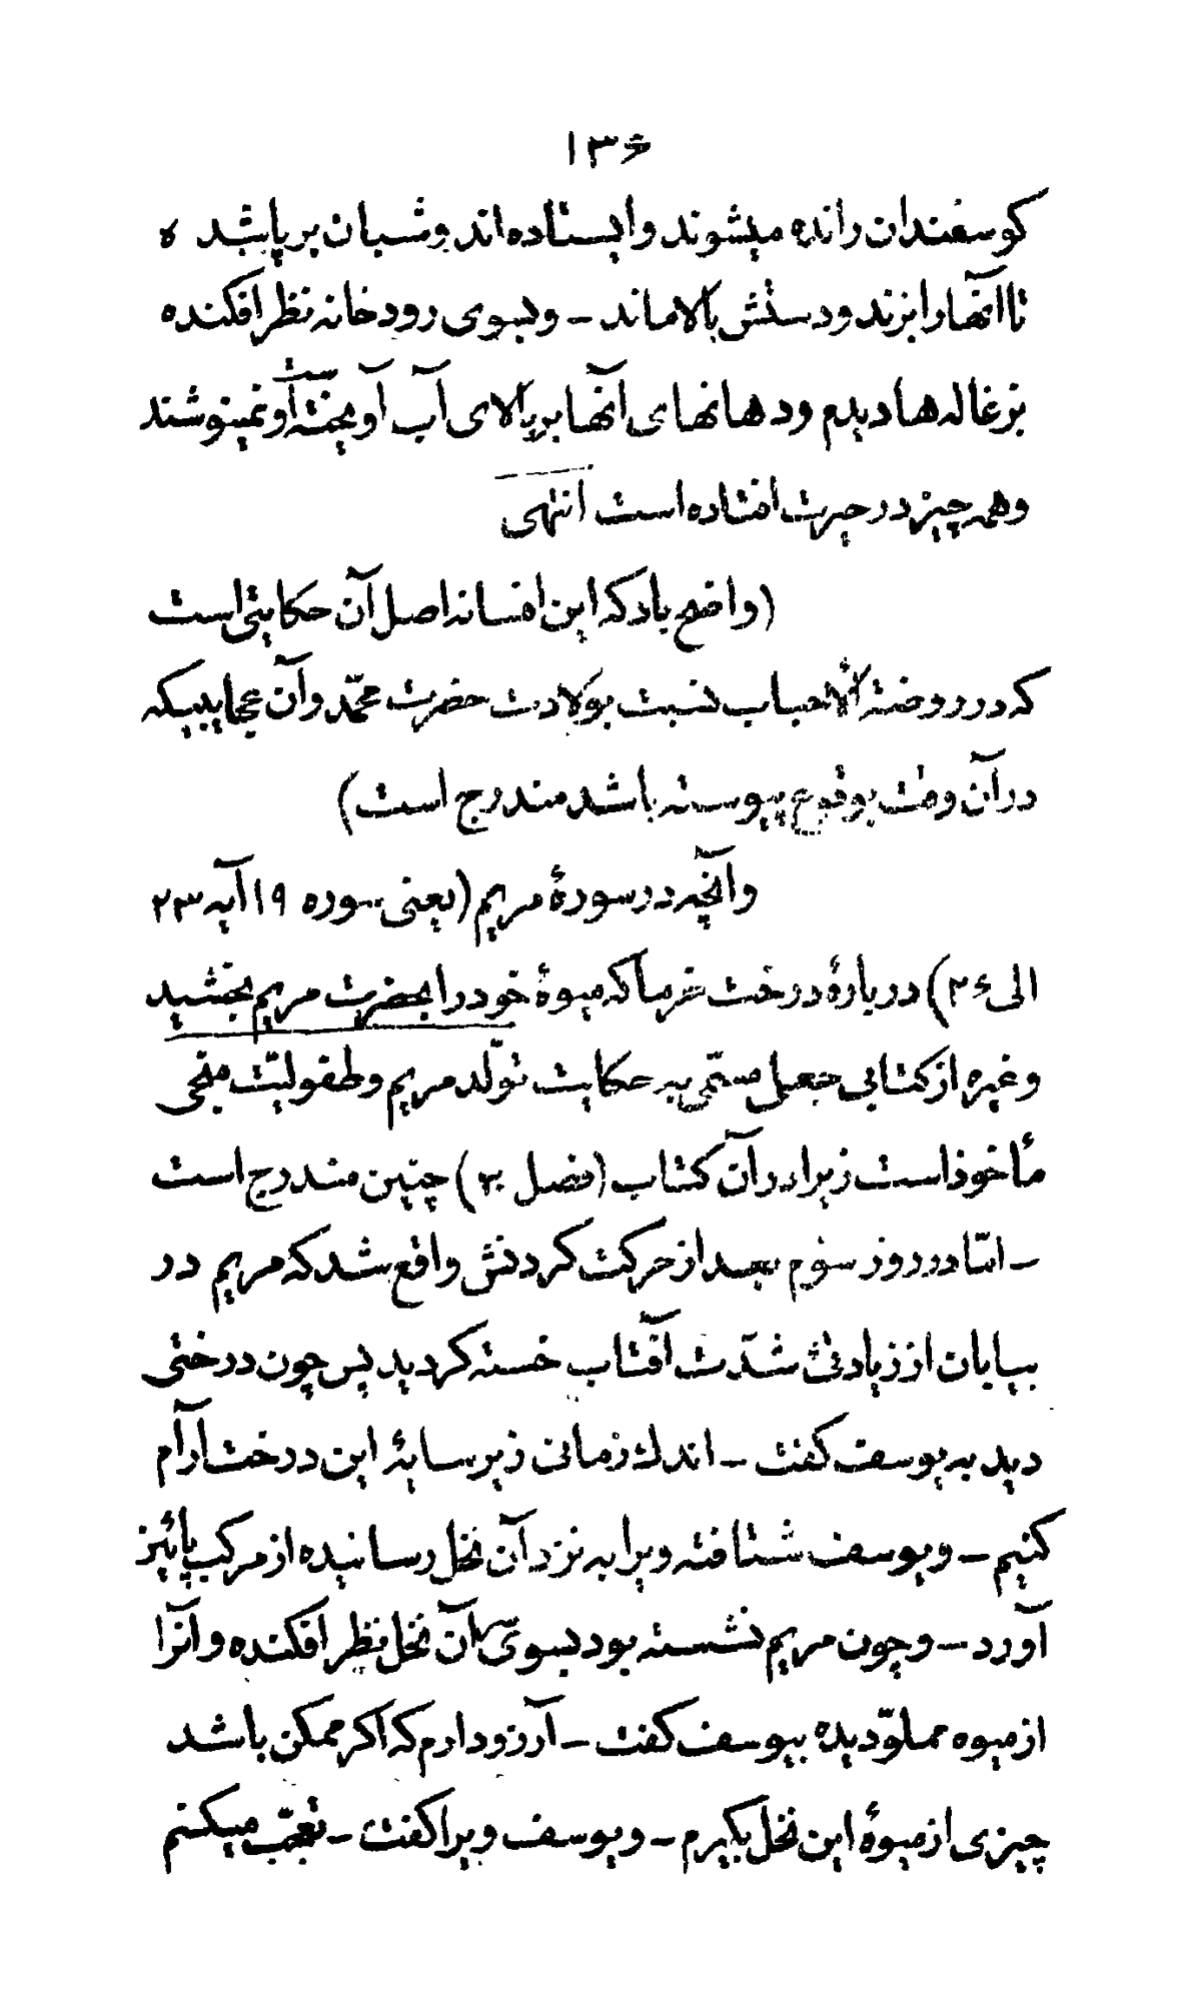 ۱۳۶
کوسفندان رانده میشوند وایستاده‌اند وشبان برپاشد ه
تا آنها را بزند ودستش بالا ماند - وبسوی رودخانه نظر افکنده
بزغاله‌ها دیدم ودهانهای آنها بر بالای آب آویخته است ونمینوشند
وهمه چیز در حیرت افتاده است انتهی
(واضح باد که این افسانه اصل آن حکایتی است
که در روضة الأحباب نسبت بولادت حضرت محمّد وآن عجایبیکه
در آن وقت بوقوع پیوسته باشد مندرج است)
وآنچه در سورهٔ مریم (یعنی سوره ۱۹ آیه ۲۳
الی ۲۶) دربارهٔ درخت خرما که میوهٔ خود را بحضرت مریم بخشید
وغیره از کتابی جعلی مسمّی به حکایت تولّد مریم وطفولیّت منجی
مأخوذ است زیرا در آن کتاب (فصل ۲۰) چنین مندرج است
- امّا در روز سوم بعد از حرکت کردنش واقع شد که مریم در
بیابان از زیادتئ شدّت آفتاب خسته کردید پس چون درختی
دید به یوسف کفت - اندك زمانی زیر سایهٔ این درخت آرام
کنیم - ویوسف شتافته ویرا به نزد آن نخل رسانیده از مرکب پائیز
آورد - وچون مریم نشسته بود بسوی آن نخل نظر افکنده وآنرا
از میوه مملوّ دیده بیوسف کفت - آرزو دارم که اکر ممکن باشد
چیزی از میوهٔ این نخل بکیرم - ویوسف ویرا کفت - تعجّب میکنم